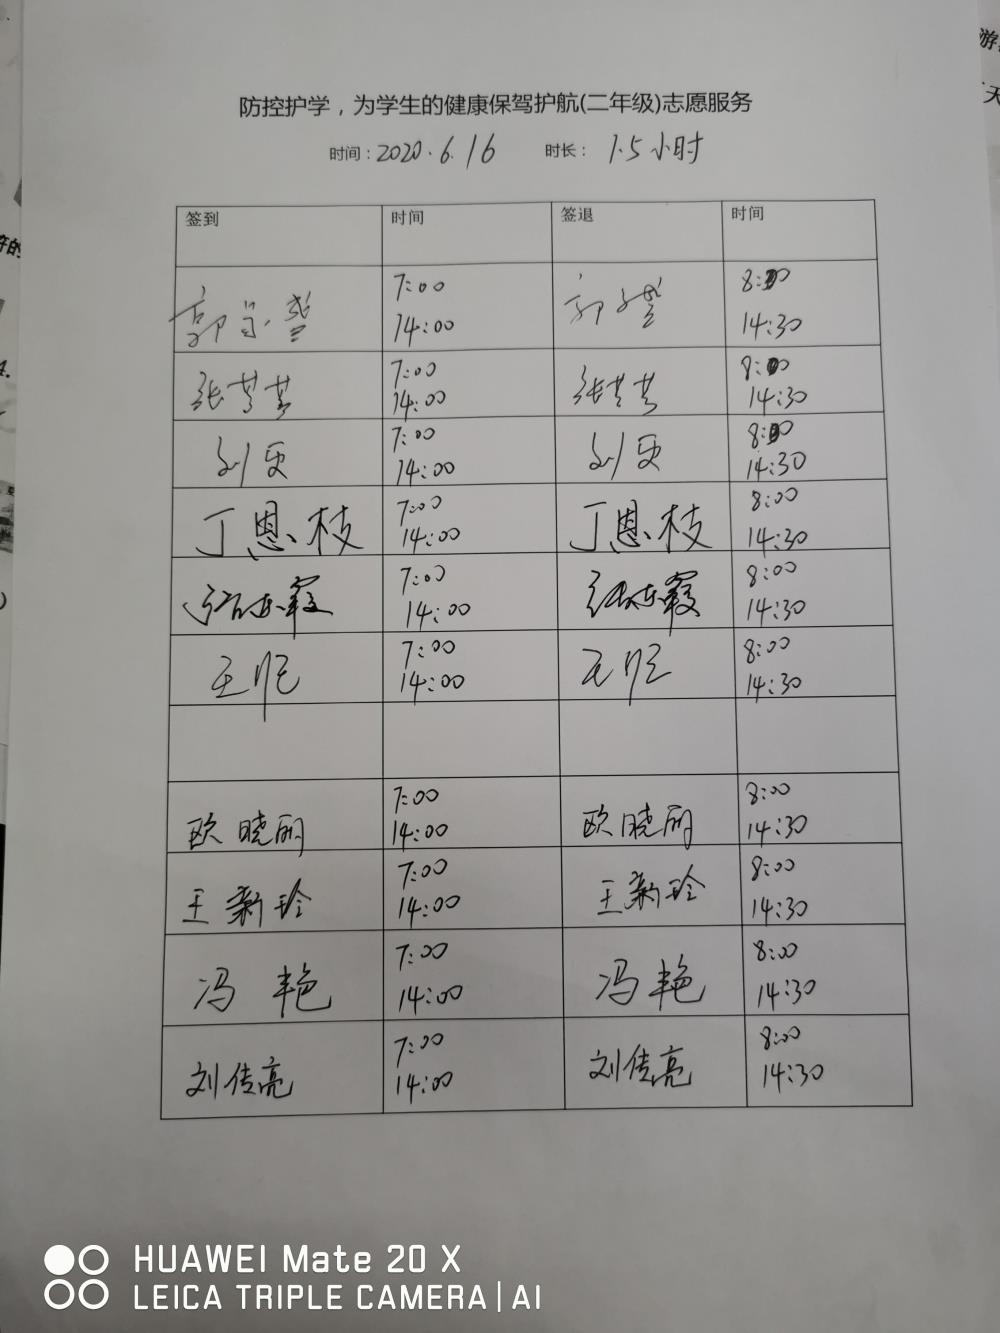 防控护学，为学生的健康保驾护航(二年级)志愿服务
时间：2020.6.16 时长： 1.5小时
签到 时间 签退 时间
7:00 8:00
14:00 14:30
张芳芳 7:00 张芳芳 8:00
14:00 14:30
刘更 7:00 刘更 8:00
14:00 14:30
丁恩枝 7:00 丁恩枝 8:00
14:00 14:30
7:00 8:00
14:00 14:30
7:00 8:00
14:00 14:30
欧晓丽 7:00 欧晓丽 8:00
14:00 14:30
王新玲 7:00 王新玲 8:00
14:00 14:30
冯艳 7:00 冯艳 8:00
14:00 14:30
刘传亮 7:00 刘传亮 8:00
14:00 14:30
HUAWEI Mate 20 X
LEICA TRIPLE CAMERA | AI